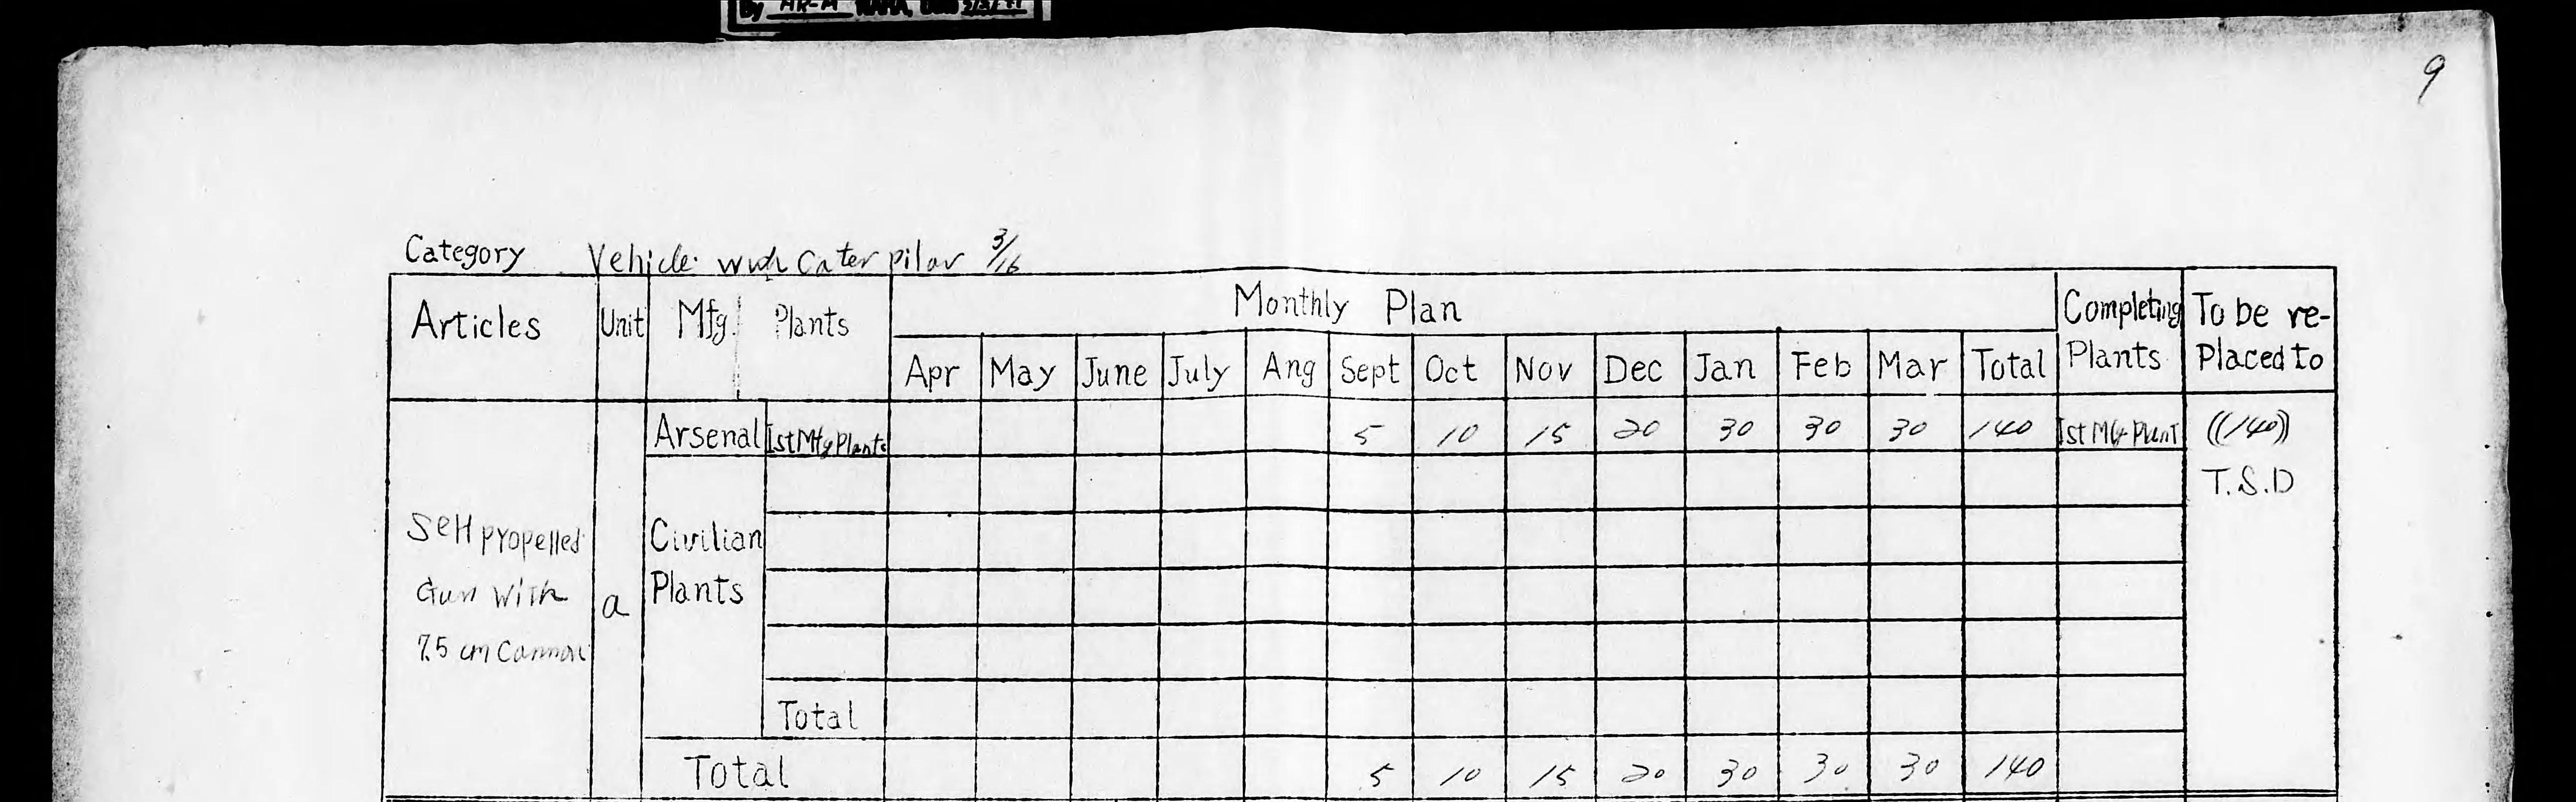 By HR-M NARA, Date
9
Category Vehicle with Caterpilar 3/16
Articles Unit Mfg. Plants Monthly Plan Completing Plants To be re-Placed to
Apr May June July Ang Sept Oct Nov Dec Jan Feb Mar Total
Arsenal IstMfg Plants 5 10 15 20 30 30 30 140 Ist Mfg Plant ((140))
T.S.D
Self propelled
Gun With
7.5 cm Cannon
a
Civilian
Plants
Total
Total 5 10 15 20 30 30 30 140